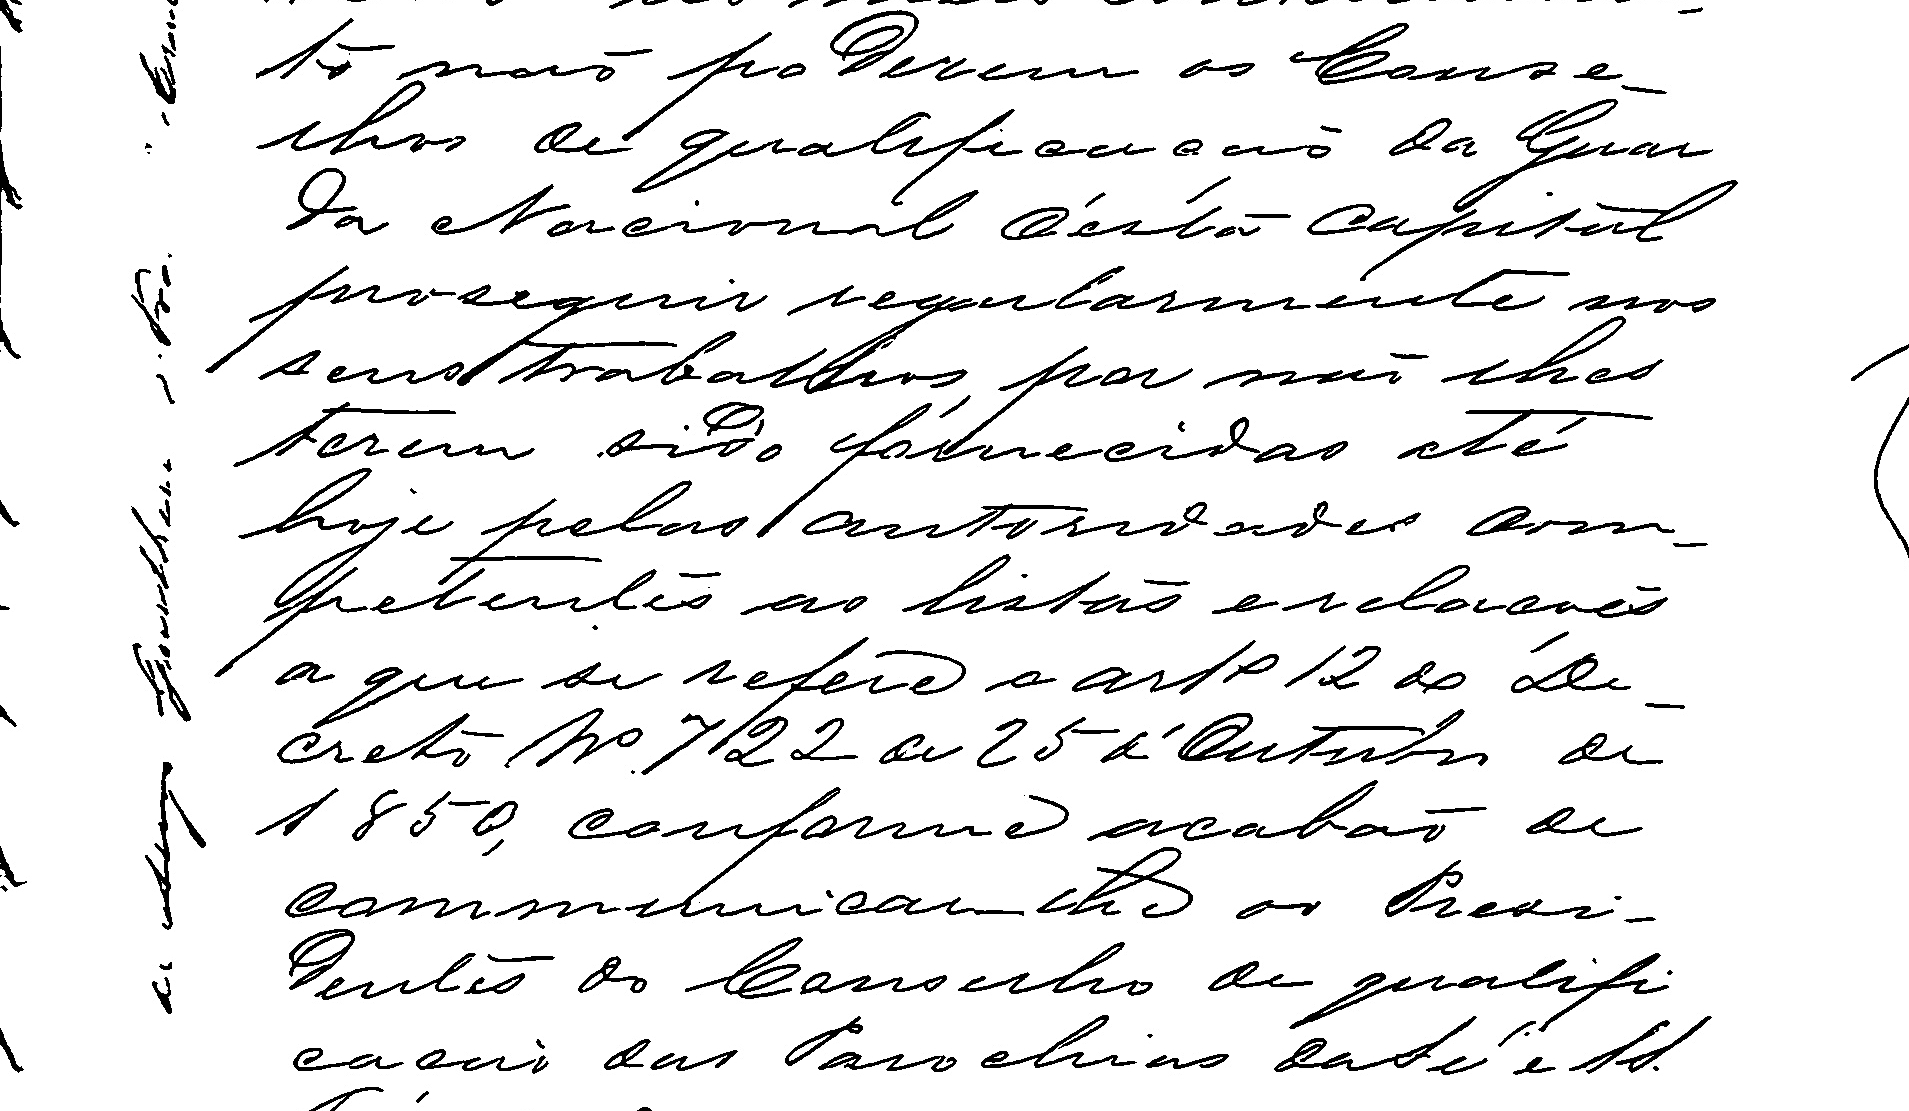 to não poderem os Conse-
lhos de qualificacão da Guar
da Nacional d'esta Capital
proseguir regularmente nos
seus trabalhos, por não lhes
terem sido fornecidas até
hoje pelas autoridades com-
petentes as listas e relacoẽs
a que se refere o artº 12 do De-
creto Nº 722 de 25 d'Outubro de
1850, conforme acabão de
communicar-lhe os Presi-
dentes do Conselho de qualifi
cacão das Parochias da Sé e St.